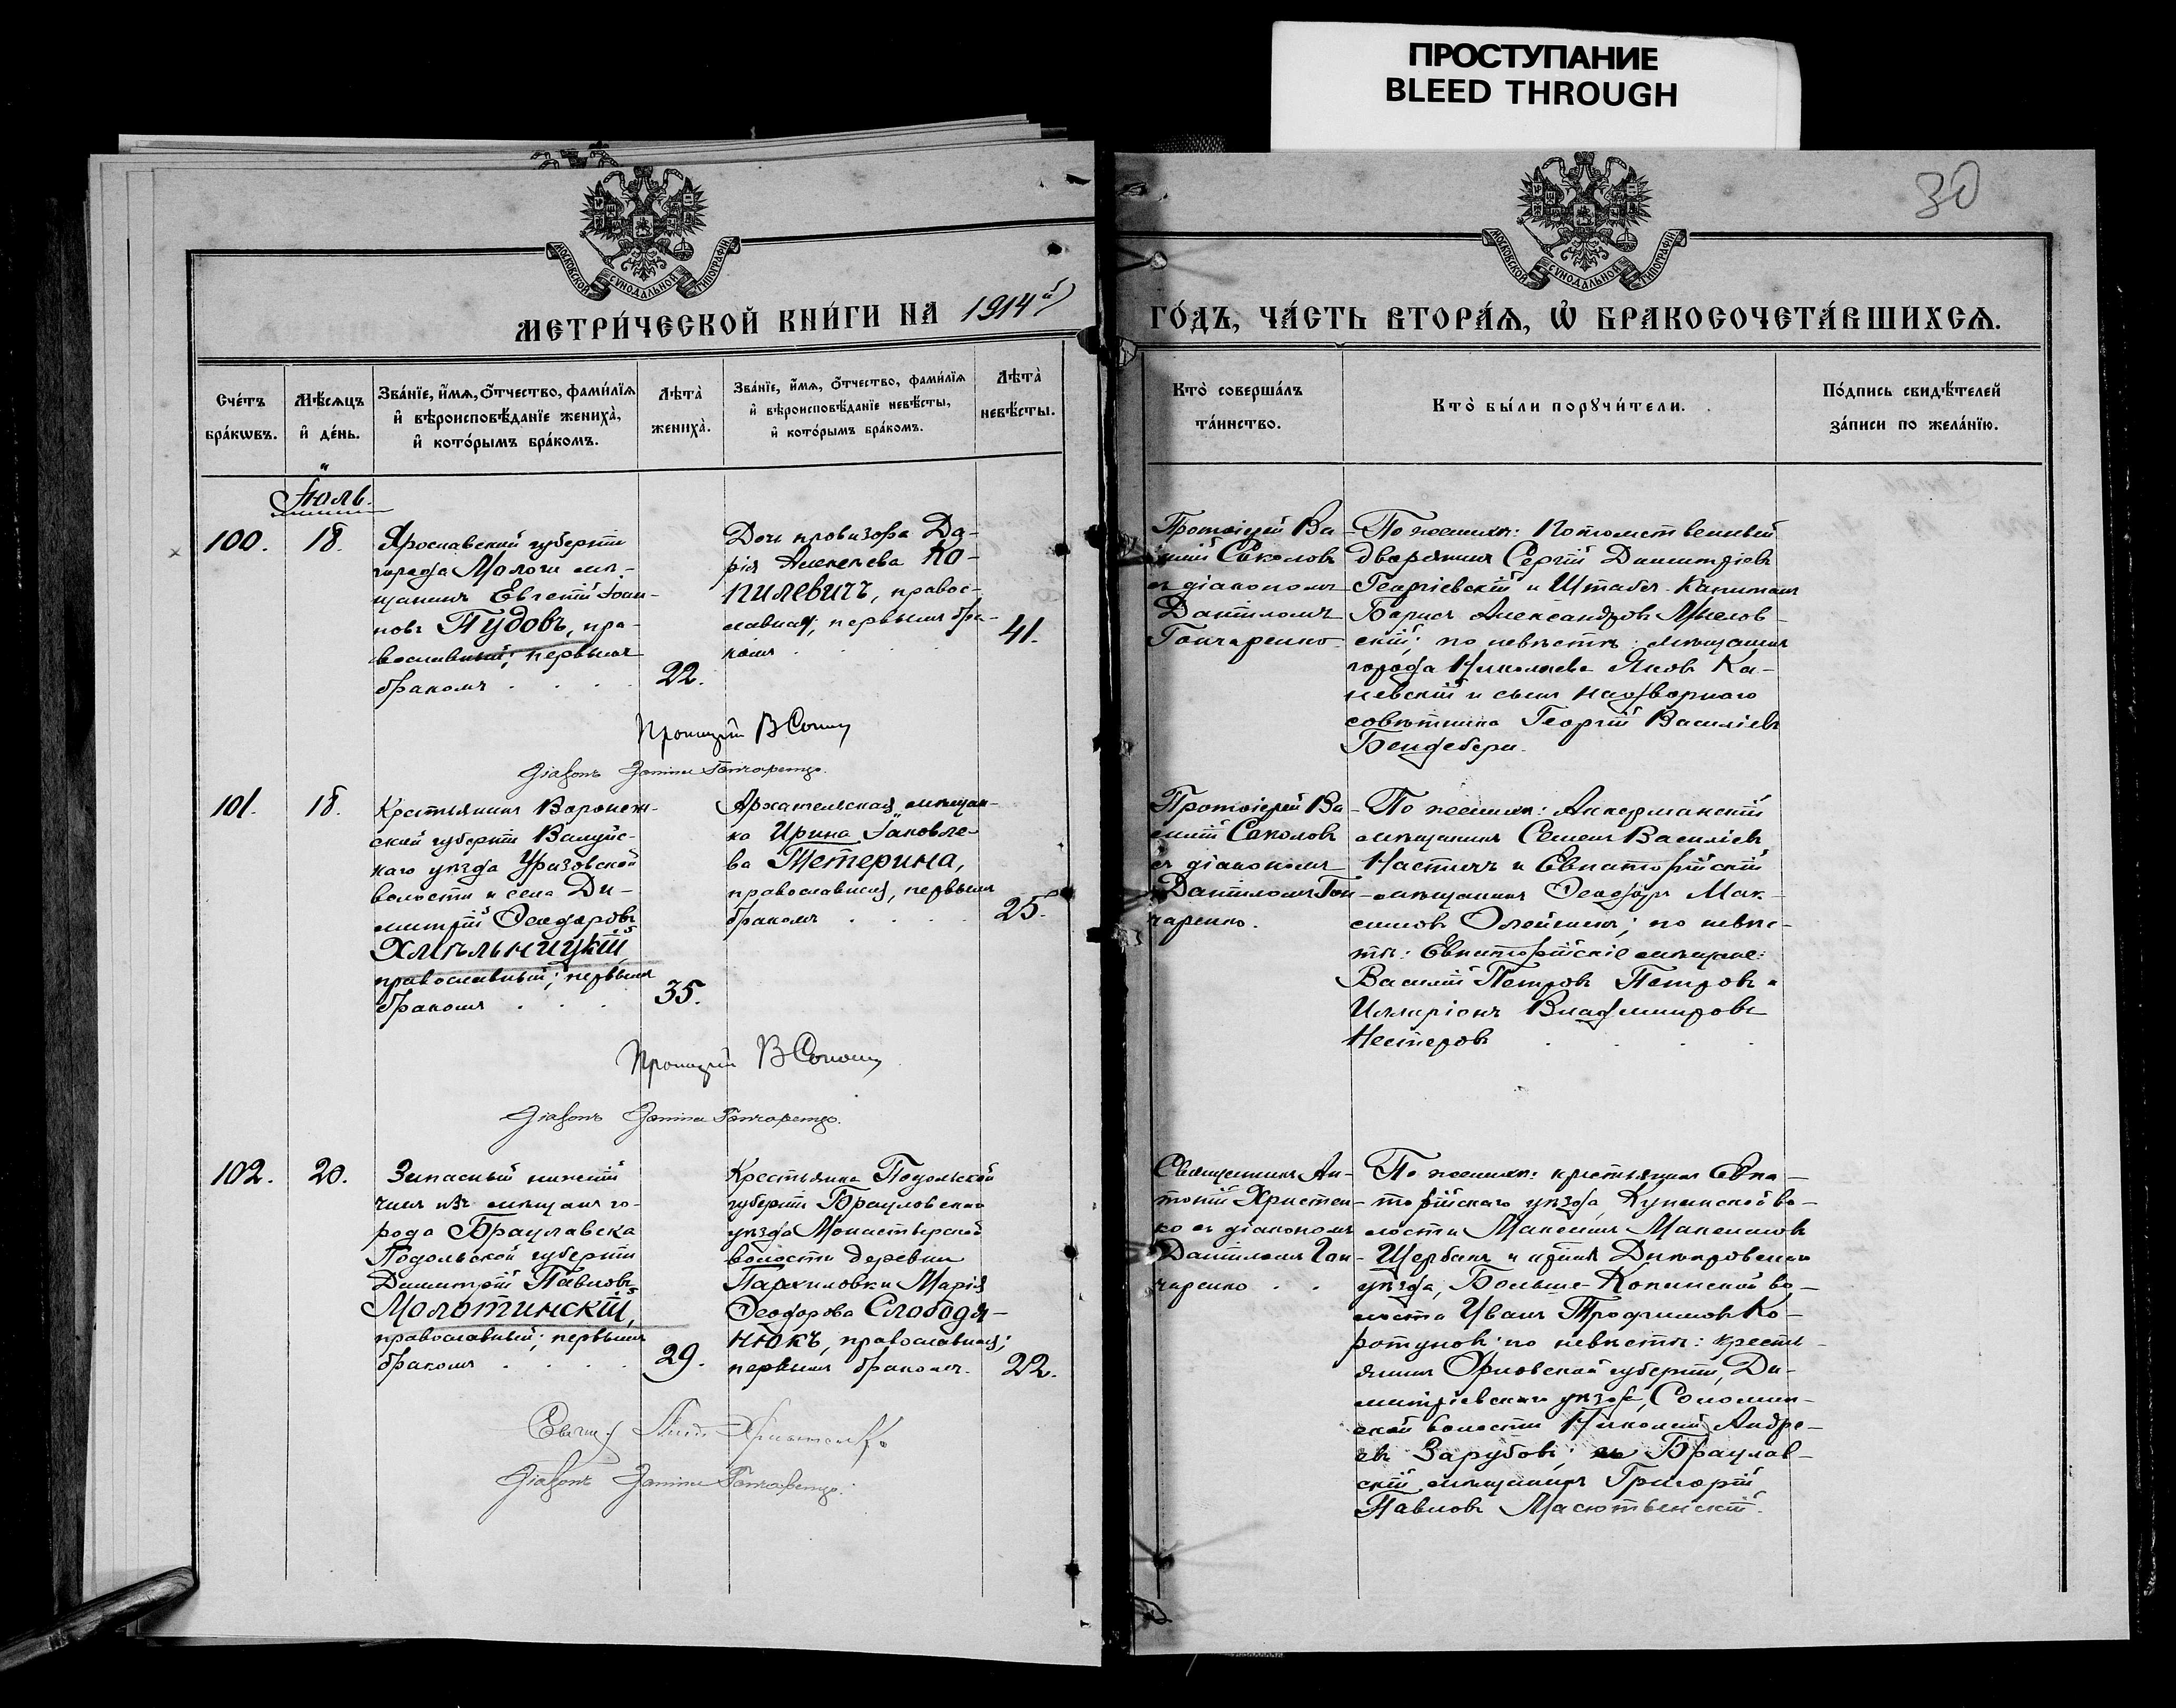 ПРОСТУПАНИЕ
BLEED THROUGH
30
МОСКОВСКОЙ СѴНОДАЛЬНОЙ ТИПОГРАФІИ
МОСКОВСКОЙ СѴНОДАЛЬНОЙ ТИПОГРАФІИ
МЕТРИ́ЧЕСКОЙ КНИ́ГИ НА 1914й
ГО́ДЪ, ЧА́СТЬ ВТОРА́Ѧ, Ѡ҆ БРАКОСОЧЕТА́ВШИХСѦ.
Сче́тъ
бра́кѡвъ.
Мѣ́сѧцъ
и҆ де́нь.
Зва́нїе, и҆́мѧ, ѻ҆́тчество, фами́лїѧ
и҆ вѣроисповѣ́данїе жениха̀,
и҆ кото́рымъ бра́комъ.
Лѣта̀
жениха̀.
Зва́нїе, и҆́мѧ, ѻ҆́тчество, фами́лїѧ
и҆ вѣроисповѣ́данїе невѣ́сты,
и҆ кото́рымъ бра́комъ.
Лѣта̀
невѣ́сты.
Кто̀ соверша́лъ
та́инство.
Кто̀ бы́ли порꙋчи́тели.
По́дпись свидѣ́телей
за́писи по жела́нїю.
Іюль.
100.
18.
Ярославской губерніи
города Мологи мѣ-
щанинъ Евгеній Іоан-
новъ Пудовъ, пра-
вославный; первымъ
бракомъ
22.
Дочь провизора Да-
рія Алексѣева Ко-
пилевичъ, правос-
лавная, первымъ бра-
комъ
41.
Протоіерей Ва-
силій Соколовъ
съ діакономъ
Даніиломъ
Гончаренко.
По женихѣ: Потомственный
дворянинъ Сергій Димитріевъ
Георгіевскій и Штабсъ-Капитанъ
Борисъ Александровъ
скій; по невѣстѣ: мѣщанинъ
города Николаева Яковъ Ка-
невскій и сынъ надворнаго
совѣтника Георгій Василіевъ
Бендебери.
Протоіерей В Соколовъ
Діаконъ Даніилъ Гончаренко.
101.
18.
Крестьянинъ Воронеж-
ской губерніи Валуйс-
каго уѣзда Уразовской
волости и села Ди-
митрій Ѳеодоровъ
Хмѣльницкій,
православный; первымъ
бракомъ
35.
мѣщан-
ка Ирина Іаковле-
ва Тетерина,
православная, первымъ
бракомъ
25.
Протоіерей Ва-
силій Соколовъ
съ діакономъ
Даніиломъ Гон-
чаренко.
По женихѣ: Аккерманскій
мѣщанинъ Семенъ Василіевъ
Настичъ и Евпаторійскій
мѣщанинъ Ѳеодоръ Мак-
симовъ Олейникъ; по невѣс-
тѣ: Евпаторійскіе мѣщане:
Василій Петровъ Петровъ и
Илларіонъ Владимировъ
Нестеровъ
Протоіерей В Соколовъ
Діаконъ Даніилъ Гончаренко.
102.
20.
Запасный нижній
чинъ изъ мѣщанъ го-
рода Брацлавска
Подольской губерніи
Димитрій Павловъ
Молотинскій,
православный; первымъ
бракомъ
29.
Крестьянка Подольской
губерніи Брацловскаго
уѣзда Монастырской
волости деревни
Парахиловки Марія
Ѳеодорова Слободя-
нюкъ, православная;
первымъ бракомъ.
22.
Священникъ Ан-
тоній Христен-
ко съ діакономъ
Даніиломъ Гон-
чаренко
По женихѣ: крестьянинъ Евпа-
торійскаго уѣзда, Кунанской во-
лости Максимъ Максимовъ
Щербакъ и
уѣзда, Больше-Копанской во-
лости Иванъ Трофимовъ Ко-
ротуновъ; по невѣстѣ: кресть-
янинъ Орловской губерніи, Ди-
митріевскаго уѣзда,
ской волости Николай Андре-
евъ Зарубовъ; и Брацлав-
скій мѣщанинъ Григорій
Павловъ Масютынскій.
Христенко
Діаконъ Даніилъ Гончаренко.